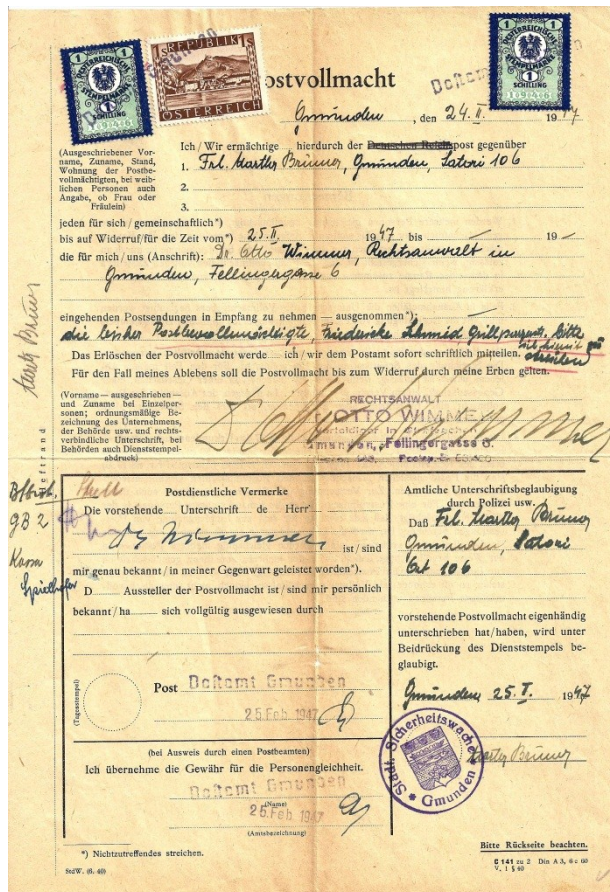 1 ÖSTERREICHISCHE STEMPELMARKE 1
1
SCHILLING
1s REPUBLIK 1s
ÖSTERREICH
1 ÖSTERREICHISCHE STEMPELMARKE 1
1
SCHILLING
Postvollmacht
Gmunden, den 24. II. 1947
(Ausgeschriebener Vor-
name, Zuname, Stand,
Wohnung der Postbe-
vollmächtigten, bei weib-
lichen Personen auch
Angabe, ob Frau oder
Fräulein)
Ich / Wir ermächtige hierdurch der Deutschen Reichspost gegenüber
1. Frl. Martha Brunner, Gmunden, Satori 106
2.
3.
jeden für sich / gemeinschaftlich*)
bis auf Widerruf/für die Zeit vom*) 25. II. 1947 bis – 19 –
die für mich / uns (Anschrift): Dr. Otto Wimmer, Rechtsanwalt in
Gmunden, Fellingergasse 6
eingehenden Postsendungen in Empfang zu nehmen — ausgenommen*):
die bisher Postbevollmächtigte, Friederike Schmid bitte
streichen
Das Erlöschen der Postvollmacht werde ich / wir dem Postamt sofort schriftlich mitteilen.
Für den Fall meines Ablebens soll die Postvollmacht bis zum Widerruf durch meine Erben gelten.
(Vorname — ausgeschrieben —
und Zuname bei Einzelper-
sonen; ordnungsmäßige Be-
zeichnung des Unternehmens,
der Behörde usw. und rechts-
verbindliche Unterschrift, bei
Behörden auch Dienststempel-
abdruck)
RECHTSANWALT
OTTO WIMMER
Gmunden, Fellingergasse 6.
Heftrand
Postdienstliche Vermerke
Die vorstehende Unterschrift de Herr
Dr Wimmer ist / sind
mir genau bekannt / in meiner Gegenwart geleistet worden*).
D Aussteller der Postvollmacht ist / sind mir persönlich
bekannt / ha sich vollgültig ausgewiesen durch
(Tagesstempel)
Post Postamt Gmunden
25. Feb. 1947
(bei Ausweis durch einen Postbeamten)
Ich übernehme die Gewähr für die Personengleichheit.
Postamt Gmunden
(Name)
25. Feb. 1947
(Amtsbezeichnung)
Amtliche Unterschriftsbeglaubigung
durch Polizei usw.
Daß Frl. Martha Brunner
Gmunden, Satori
106
vorstehende Postvollmacht eigenhändig
unterschrieben hat / haben, wird unter
Beidrückung des Dienststempels be-
glaubigt.
Gmunden 25. II. 1947
Städt. Sicherheitswache
Gmunden
Martha Brunner
GB 2
*) Nichtzutreffendes streichen.
Bitte Rückseite beachten.
StdW. (6. 40)
C 141 zu 2 Din A 3, 6 c 60
V. 1 § 40